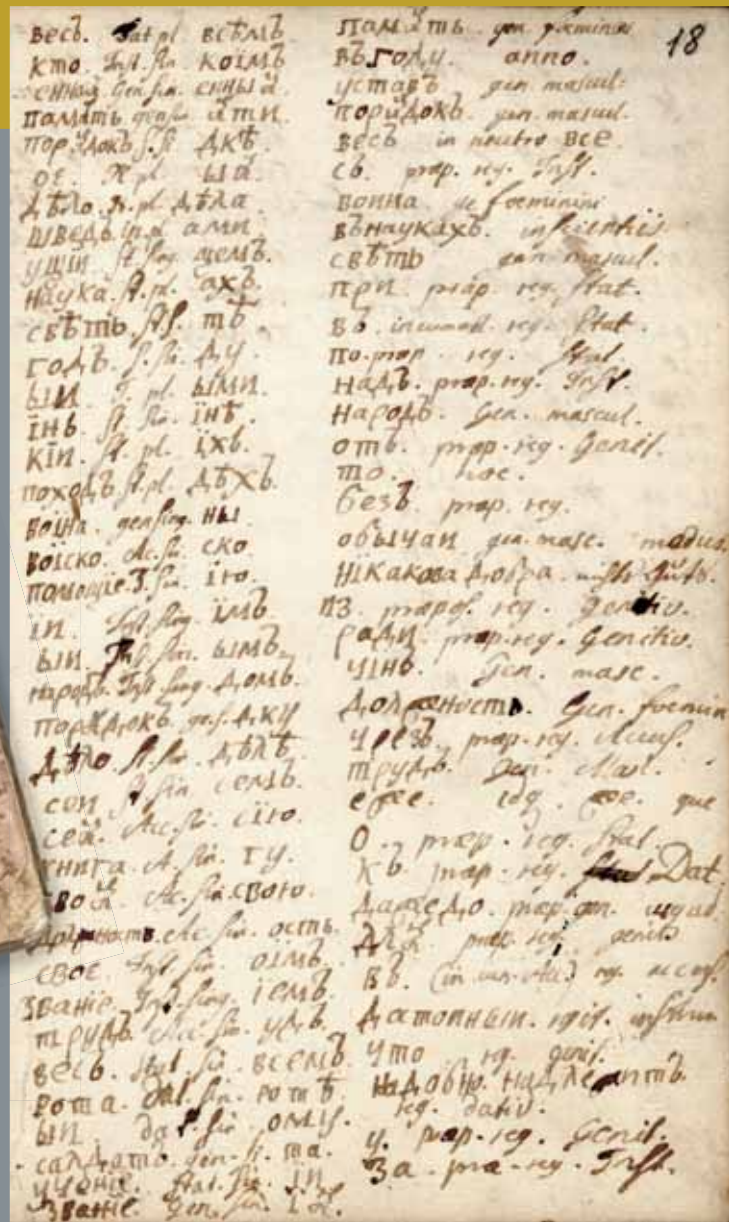 18
весь. Dat pl. всѣмъ
кто. Inst. sin. коімъ
Gen. sin.
память gen sin ѧти
порѧдокъ S. si. дкѣ
ое. N. pl. ыѧ
дѣло. N. pl. дѣла
шведъ. in. pl. ами
ущии St. sing. щемъ.
наука. St. pl. ахъ.
свѣтъ. St. S. тѣ
годъ. S. sin. ду.
ыи. I. pl. ыми.
інь. St. sin. інѣ.
кіи. St. pl. іхъ.
походъ. St. pl. дѣхъ.
воіна. gen sing. ны
воіско. Ac. sin. ско
помощіе. sin. ію.
іи. Inst sing. імъ
ыи. Inst sin. ымъ.
народъ. Inst sing. домъ.
порѧдокъ. дку
дѣло. St. sin. дѣлѣ
сеи St sin. семъ.
сеѧ. Acc. sin. сію.
книга. A. sin. гу.
своѧ. Ac. sin. свою.
Ac. sin. ость.
свое. Inst. sin. оімъ.
званіе. Inst. sing. іемъ.
трудъ. Ac. sin. удъ.
весь. Stat. sin. всемъ.
рота. Dat. sin. ротѣ.
ыи. dat sin. ому.
салдатъ. gen. si. та.
ученіе. Stat. sin. іи.
званіе. Gen. sin. іѧ.
памѧть. gen foeminini
въ году. anno.
уставъ gen. mascul:
порѧдокъ. gen. mascul.
весь in neutro все.
съ. præp. reg. Inst.
воина. foeminini
въ наукахъ. in scientiis
свѣтъ gen. mascul.
при. præp. reg. Stat.
въ. reg. Stat.
по. præp. reg. Stat.
надъ. præp. reg. Inst.
народъ. Gen. mascul.
отъ. præp. reg. Genit.
то. hoc.
безъ. præp. reg.
обычаи gen. masc. modus.
нікакова добра.
из. præpos. reg. Genitiv.
ради. præp. reg. Genitiv.
чінъ. Gen. masc.
должность. Gen. foeminin
чрезъ. præp. reg. Accus.
трудъ. Gen. Mas.
еже. que
о. præp. reg. Stat.
къ præp. reg. Dat.
даже до. præp. gen. usquad.
длѧ præp. reg. genit
въ. reg. accus.
датоиныи.
что reg. genit.
надобно. надлежитъ.
reg. dativ.
у. præp. reg. Genit.
за. præ. reg. Inst.